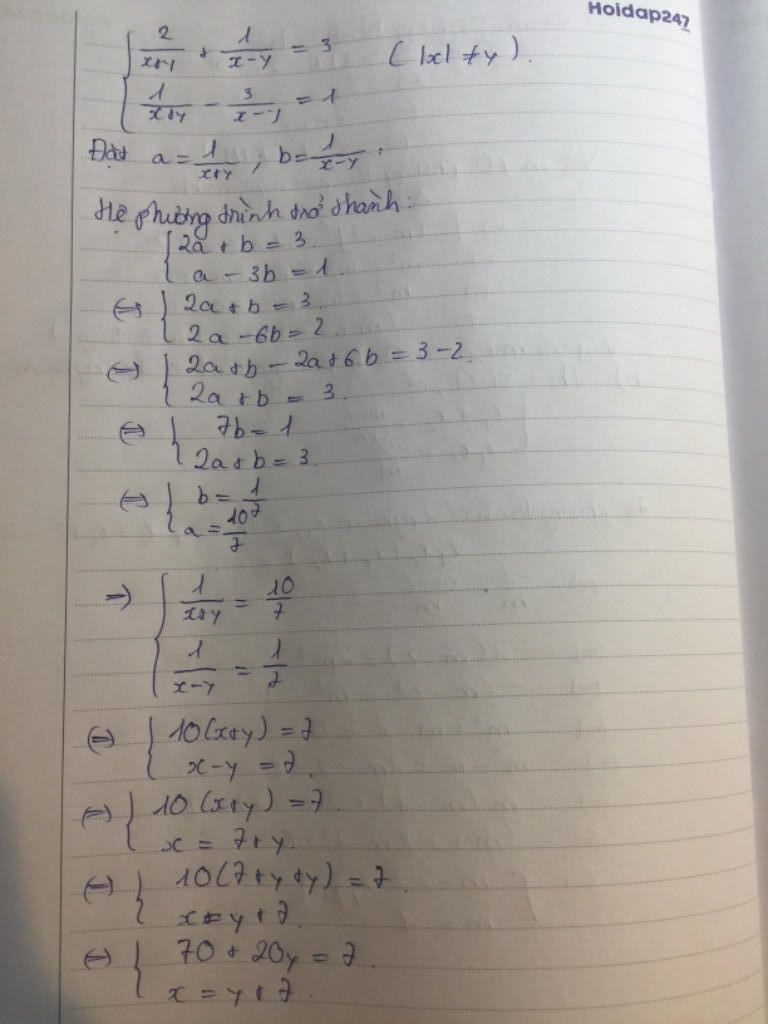 Hoidap247
{ 2/(x+y) + 1/(x-y) = 3 (|x| ≠ y).
1/(x+y) - 3/(x-y) = 1
Đặt a = 1/(x+y) ; b = 1/(x-y) .
Hệ phương trình trở thành:
{ 2a + b = 3.
a - 3b = 1.
⇔ { 2a + b = 3.
2a - 6b = 2.
⇔ { 2a + b - 2a + 6b = 3 - 2.
2a + b = 3.
⇔ { 7b = 1
2a + b = 3.
⇔ { b = 1/7
a = 10/7
⇒ { 1/(x+y) = 10/7
1/(x-y) = 1/7
⇔ { 10(x+y) = 7
x - y = 7.
⇔ { 10(x+y) = 7.
x = 7 + y.
⇔ { 10(7+y+y) = 7.
x = y + 7.
⇔ { 70 + 20y = 7.
x = y + 7.